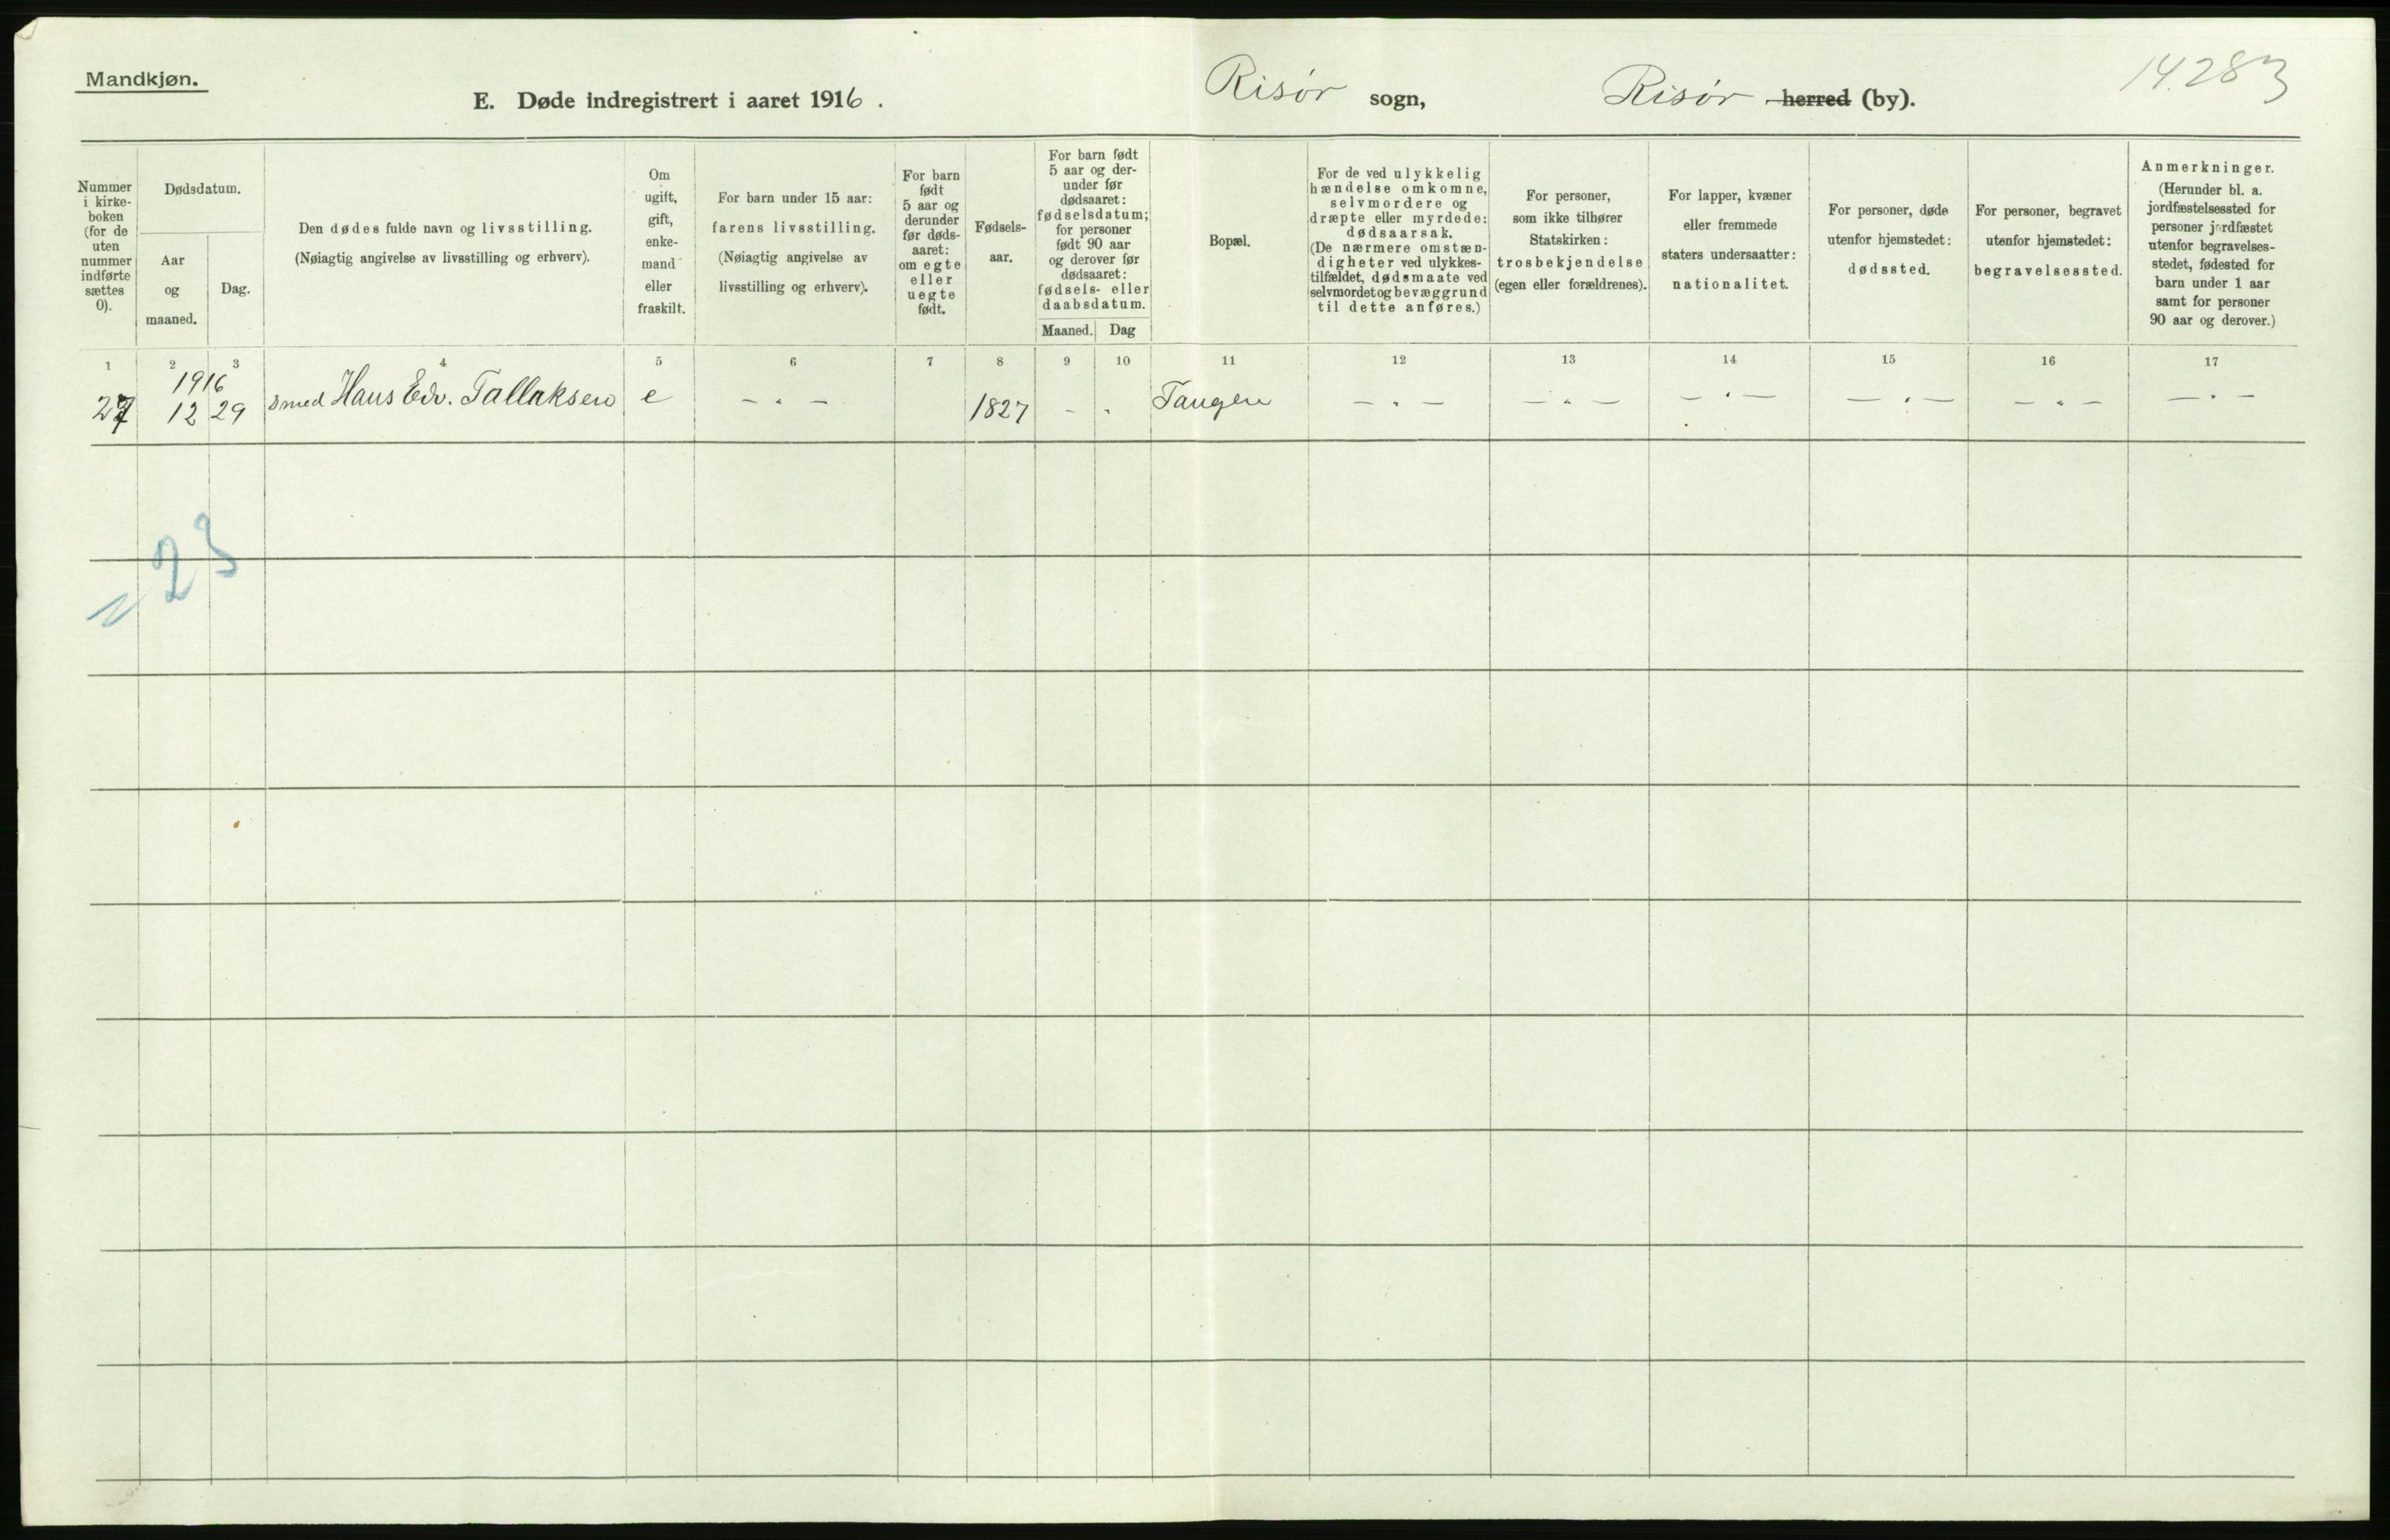 Mandkjøn.
E. Døde indregistrert i aaret 1916.
Risør sogn,
Risør herred (by).
14.283
Nummer
i kirke-
boken
(for de
uten
nummer
indførte
sættes
0).
Dødsdatum.
Aar
og
maaned.
Dag.
Den dødes fulde navn og livsstilling.
(Nøiagtig angivelse av livsstilling og erhverv).
Om
ugift,
gift,
enke-
mand
eller
fraskilt.
For barn under 15 aar:
farens livsstilling.
(Nøiagtig angivelse av
livsstilling og erhverv).
For barn
født
5 aar og
derunder
før døds-
aaret:
om egte
eller
uegte
født.
Fødsels-
aar.
For barn født
5 aar og der-
under før
dødsaaret:
fødselsdatum;
for personer
født 90 aar
og derover før
dødsaaret:
fødsels- eller
daabsdatum.
Maaned.
Dag
Bopæl.
For de ved ulykkelig
hændelse omkomne,
selvmordere og
dræpte eller myrdede:
dødsaarsak.
(De nærmere omstæn-
digheter ved ulykkes-
tilfældet, dødsmaate ved
selvmordet og bevæggrund
til dette anføres.)
For personer,
som ikke tilhører
Statskirken:
trosbekjendelse
(egen eller forældrenes).
For lapper, kvæner
eller fremmede
staters undersaatter:
nationalitet.
For personer, døde
utenfor hjemstedet:
dødssted.
For personer, begravet
utenfor hjemstedet:
begravelsessted.
Anmerkninger.
(Herunder bl. a.
jordfæstelsessted for
personer jordfæstet
utenfor begravelses-
stedet, fødested for
barn under 1 aar
samt for personer
90 aar og derover.)
1 2 3 4 5 6 7 8 9 10 11 12 13 14 15 16 17
1916
27 12 29 smed Hans Edv. Tallaksen e - " - 1827 - " Tangen - " - - " - - " - - " - - " - - " -
23